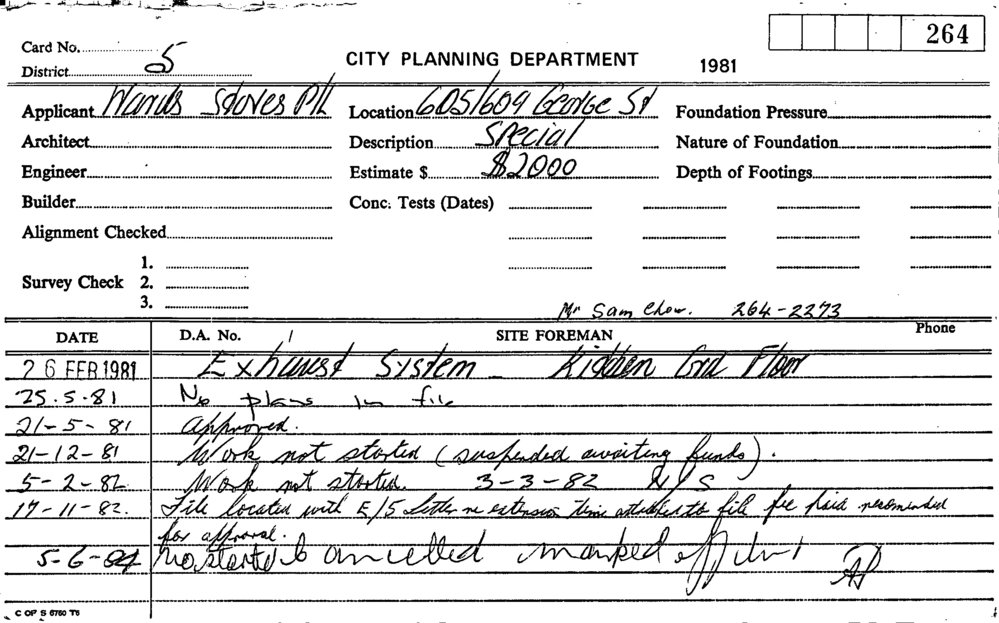 264
Card No. 5
CITY PLANNING DEPARTMENT 1981
District
Applicant Wands Stoves P/L Location 605/609 George St Foundation Pressure
Architect Description Special Nature of Foundation
Engineer Estimate $ $2000 Depth of Footings
Builder Conc: Tests (Dates)
Alignment Checked
1.
Survey Check 2.
3.
Mr Sam Chow. 264-2273
DATE D.A. No. SITE FOREMAN Phone
26 FEB 1981 Exhaust System - Kitchen Grd Floor
25.5.81 No plans in file
21-5-81 Approved.
21-12-81 Work not started (suspended awaiting funds).
5-2-82 Work not started. 3-3-82 N/S
17-11-82. File located with E/S letter re extension time attached to file fee paid recommended
for approval.
5-6-84 No started cancelled marked off
C OF S 6750 T6